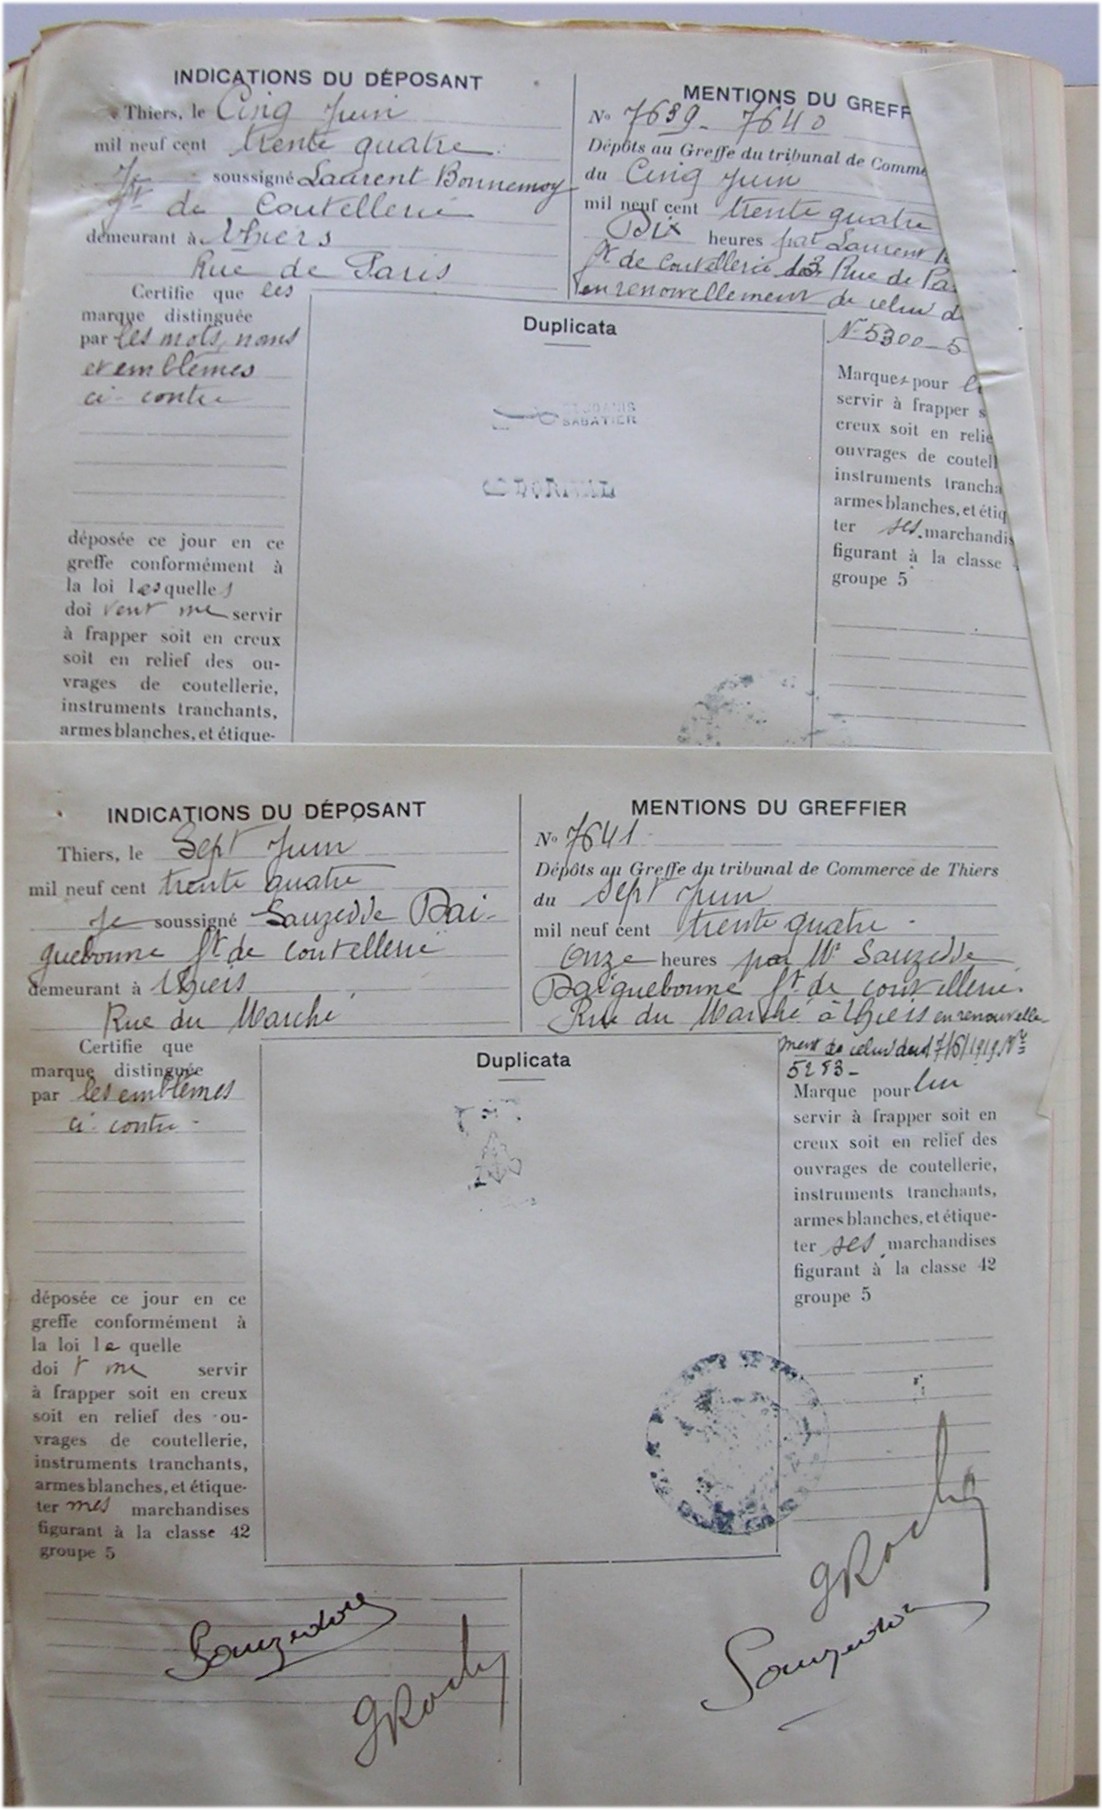 INDICATIONS DU DÉPOSANT
Thiers, le Cinq Juin
mil neuf cent trente quatre
Je soussigné Laurent Bonnemoy
ft de Coutellerie
demeurant à Thiers
Rue de Paris
Certifie que les
marque distinguée
par les mots, noms
et emblèmes
ci-contre
déposée ce jour en ce
greffe conformément à
la loi lesquelles
doivent me servir
à frapper soit en creux
soit en relief des ou-
vrages de coutellerie,
instruments tranchants,
armes blanches, et étique-
MENTIONS DU GREFF
No 7639 - 7640
Dépôts au Greffe du tribunal de Comme
du Cinq Juin
mil neuf cent trente quatre
Dix heures par Laurent
ft de coutellerie Rue de Pa
en renouvellement de celui d
No 5300 - 5
Duplicata
SABATIER
Marques pour
servir à frapper s
creux soit en relie
ouvrages de coutell
instruments trancha
armes blanches, et étiq
ter ses marchandis
figurant à la classe
groupe 5
INDICATIONS DU DÉPOSANT
Thiers, le Sept Juin
mil neuf cent trente quatre
Je soussigné Sauzedde Dai-
guebonne ft de coutellerie
demeurant à Thiers
Rue du Marché
Certifie que
marque distinguée
par les emblèmes
ci-contre -
déposée ce jour en ce
greffe conformément à
la loi le quelle
doit me servir
à frapper soit en creux
soit en relief des ou-
vrages de coutellerie,
instruments tranchants,
armes blanches, et étique-
ter mes marchandises
figurant à la classe 42
groupe 5
MENTIONS DU GREFFIER
No 7641
Dépôts au Greffe du tribunal de Commerce de Thiers
du Sept Juin
mil neuf cent trente quatre -
Onze heures par Mr Sauzedde
Daiguebonne ft de coutellerie
Rue du Marché à Thiers en renouvelle-
ment de celui du 7/6/1919 No
5293 -
Duplicata
Marque pour lui
servir à frapper soit en
creux soit en relief des
ouvrages de coutellerie,
instruments tranchants,
armes blanches, et étique-
ter ses marchandises
figurant à la classe 42
groupe 5
Sauzedde
GRoch
GRoch
Sauzedde